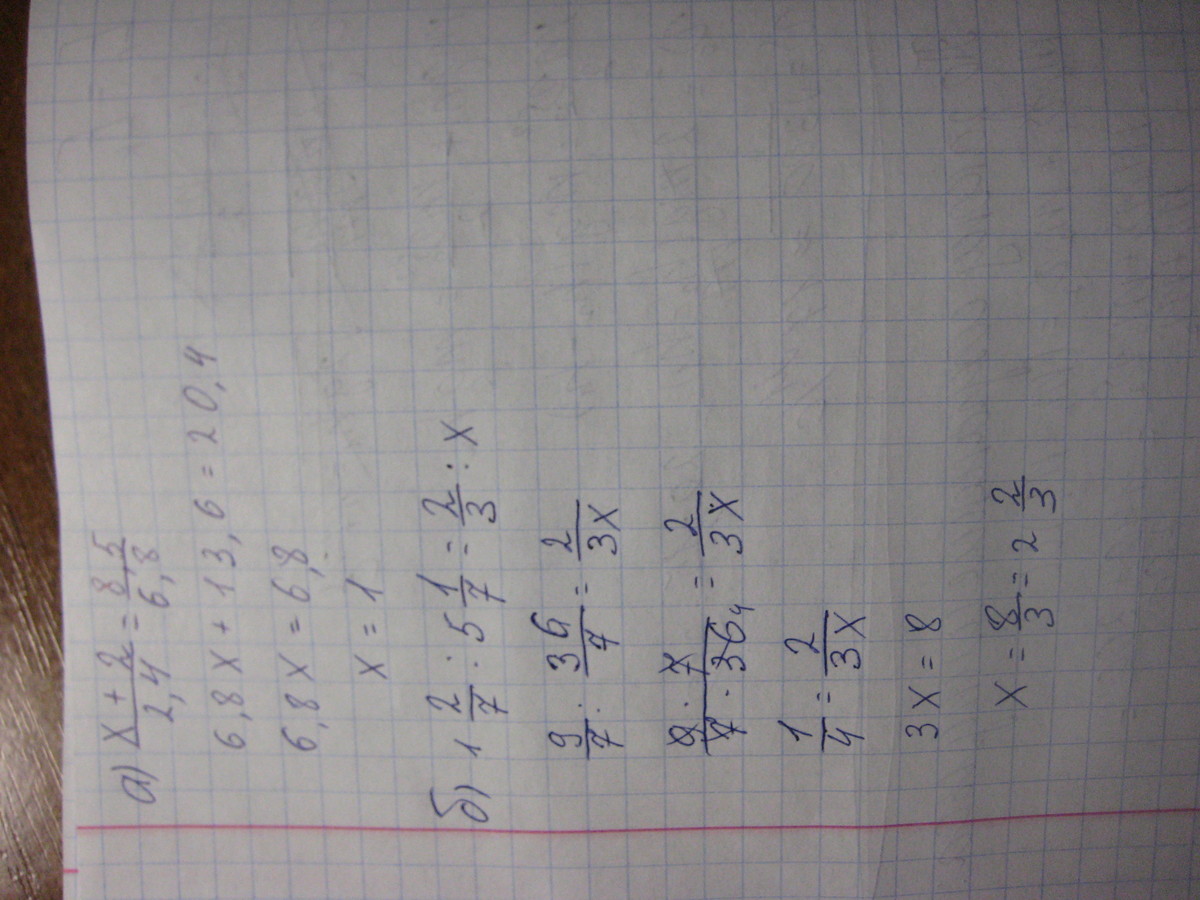 а) (x + 2)/2,4 = 8,5/6,8
6,8x + 13,6 = 20,4
6,8x = 6,8
x = 1
б) 1 2/7 : 5 1/7 = 2/3 : x
9/7 : 36/7 = 2/3x
9 · 7/7 · 36 4 = 2/3x
1/4 = 2/3x
3x = 8
x = 8/3 = 2 2/3